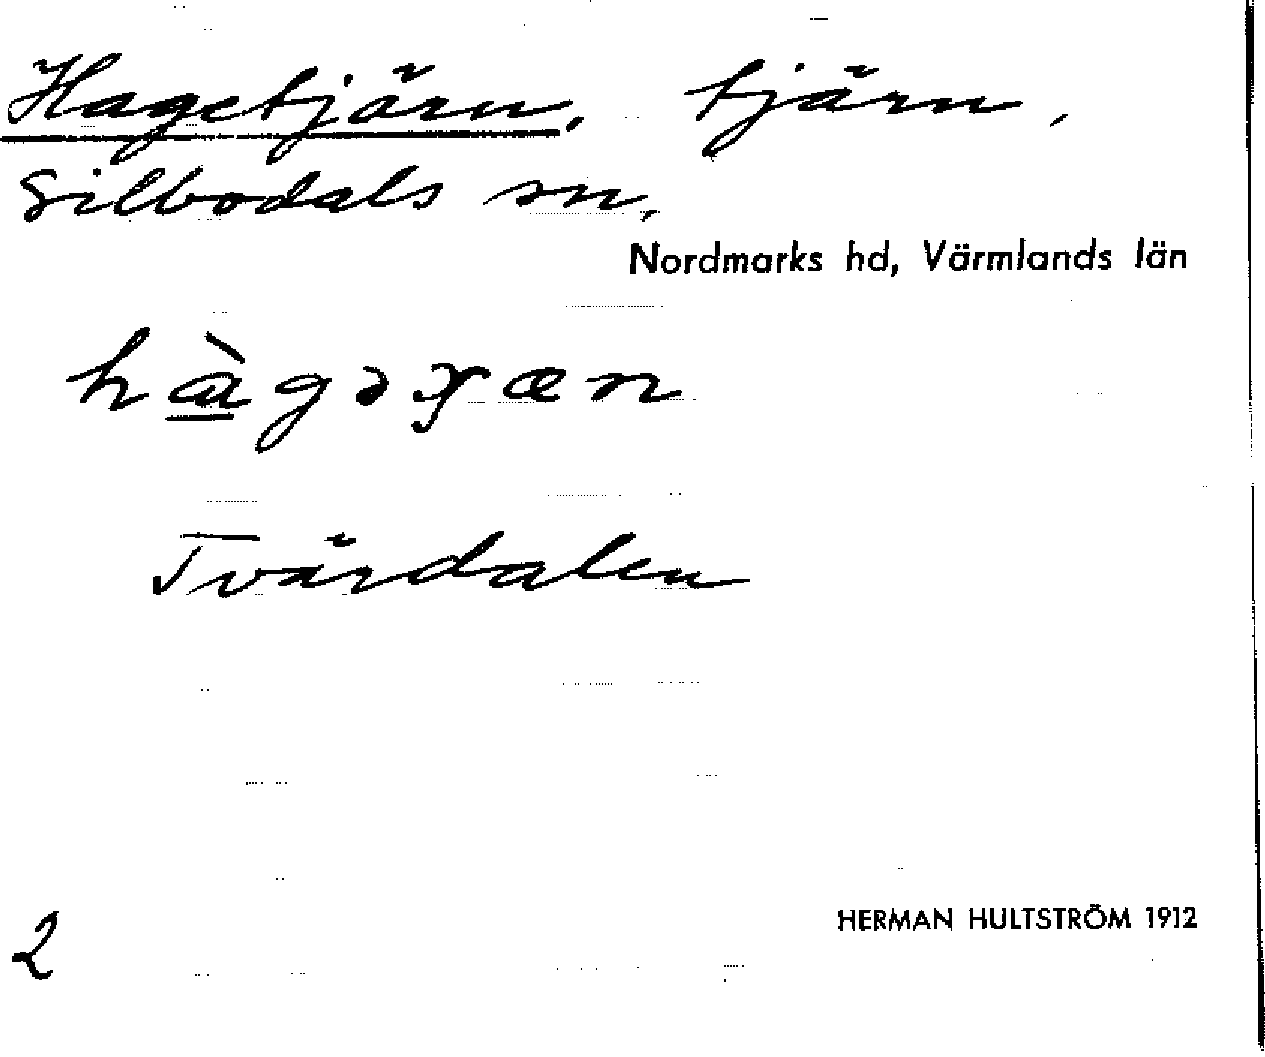 Hagetjärn, tjärn,
Silbodals sn,
Nordmarks hd, Värmlands län
Tvärdalen
HERMAN HULTSTRÖM 1912
2